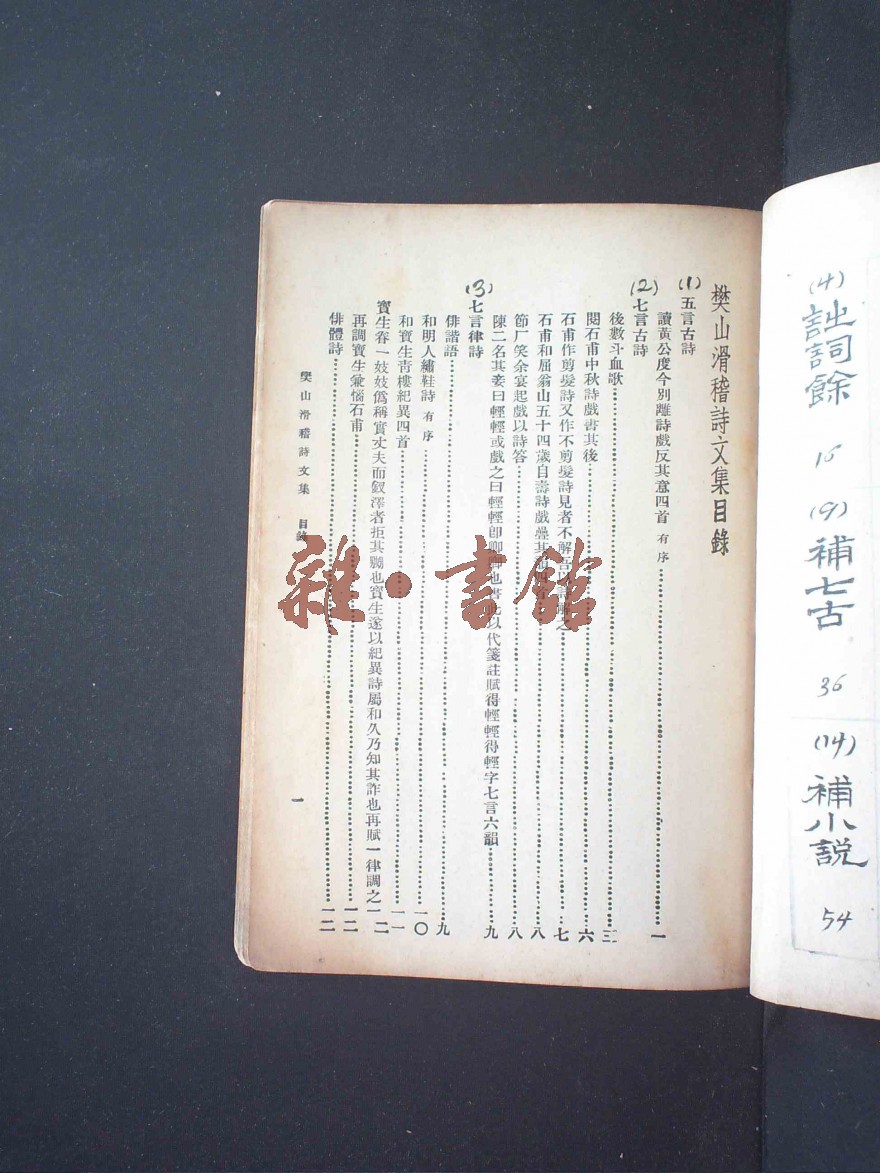 樊山滑稽詩文集目錄
(1)五言古詩
讀黃公度今別離詩戲反其意四首 有序 一
(2)七言古詩
後數斗血歌 三
閱石甫中秋詩戲書其後 六
石甫作剪髮詩又作不剪髮詩見者不解 七
石甫和屈翁山五十四歲自壽詩戲疊其 八
節厂笑余宴起戲以詩答 八
陳二名其妾曰輕輕或戲之曰輕輕即卿卿也書 以代箋註賦得輕輕得輕字七言六韻 九
(3)七言律詩
俳諧語 九
和明人繡鞋詩 有序 一〇
和寶生靑樓紀異四首 一一
寶生眷一妓妓僞稱實丈夫而釵澤者拒其 也寶生遂以紀異詩屬和久乃知其詐也再賦一律調之 一二
再調寶生兼惱石甫 一二
俳體詩 一二
樊山滑稽詩文集 目錄
一
雜·書館
(4)詘詞餘 16
(9)補七古 36
(14)補小説 54